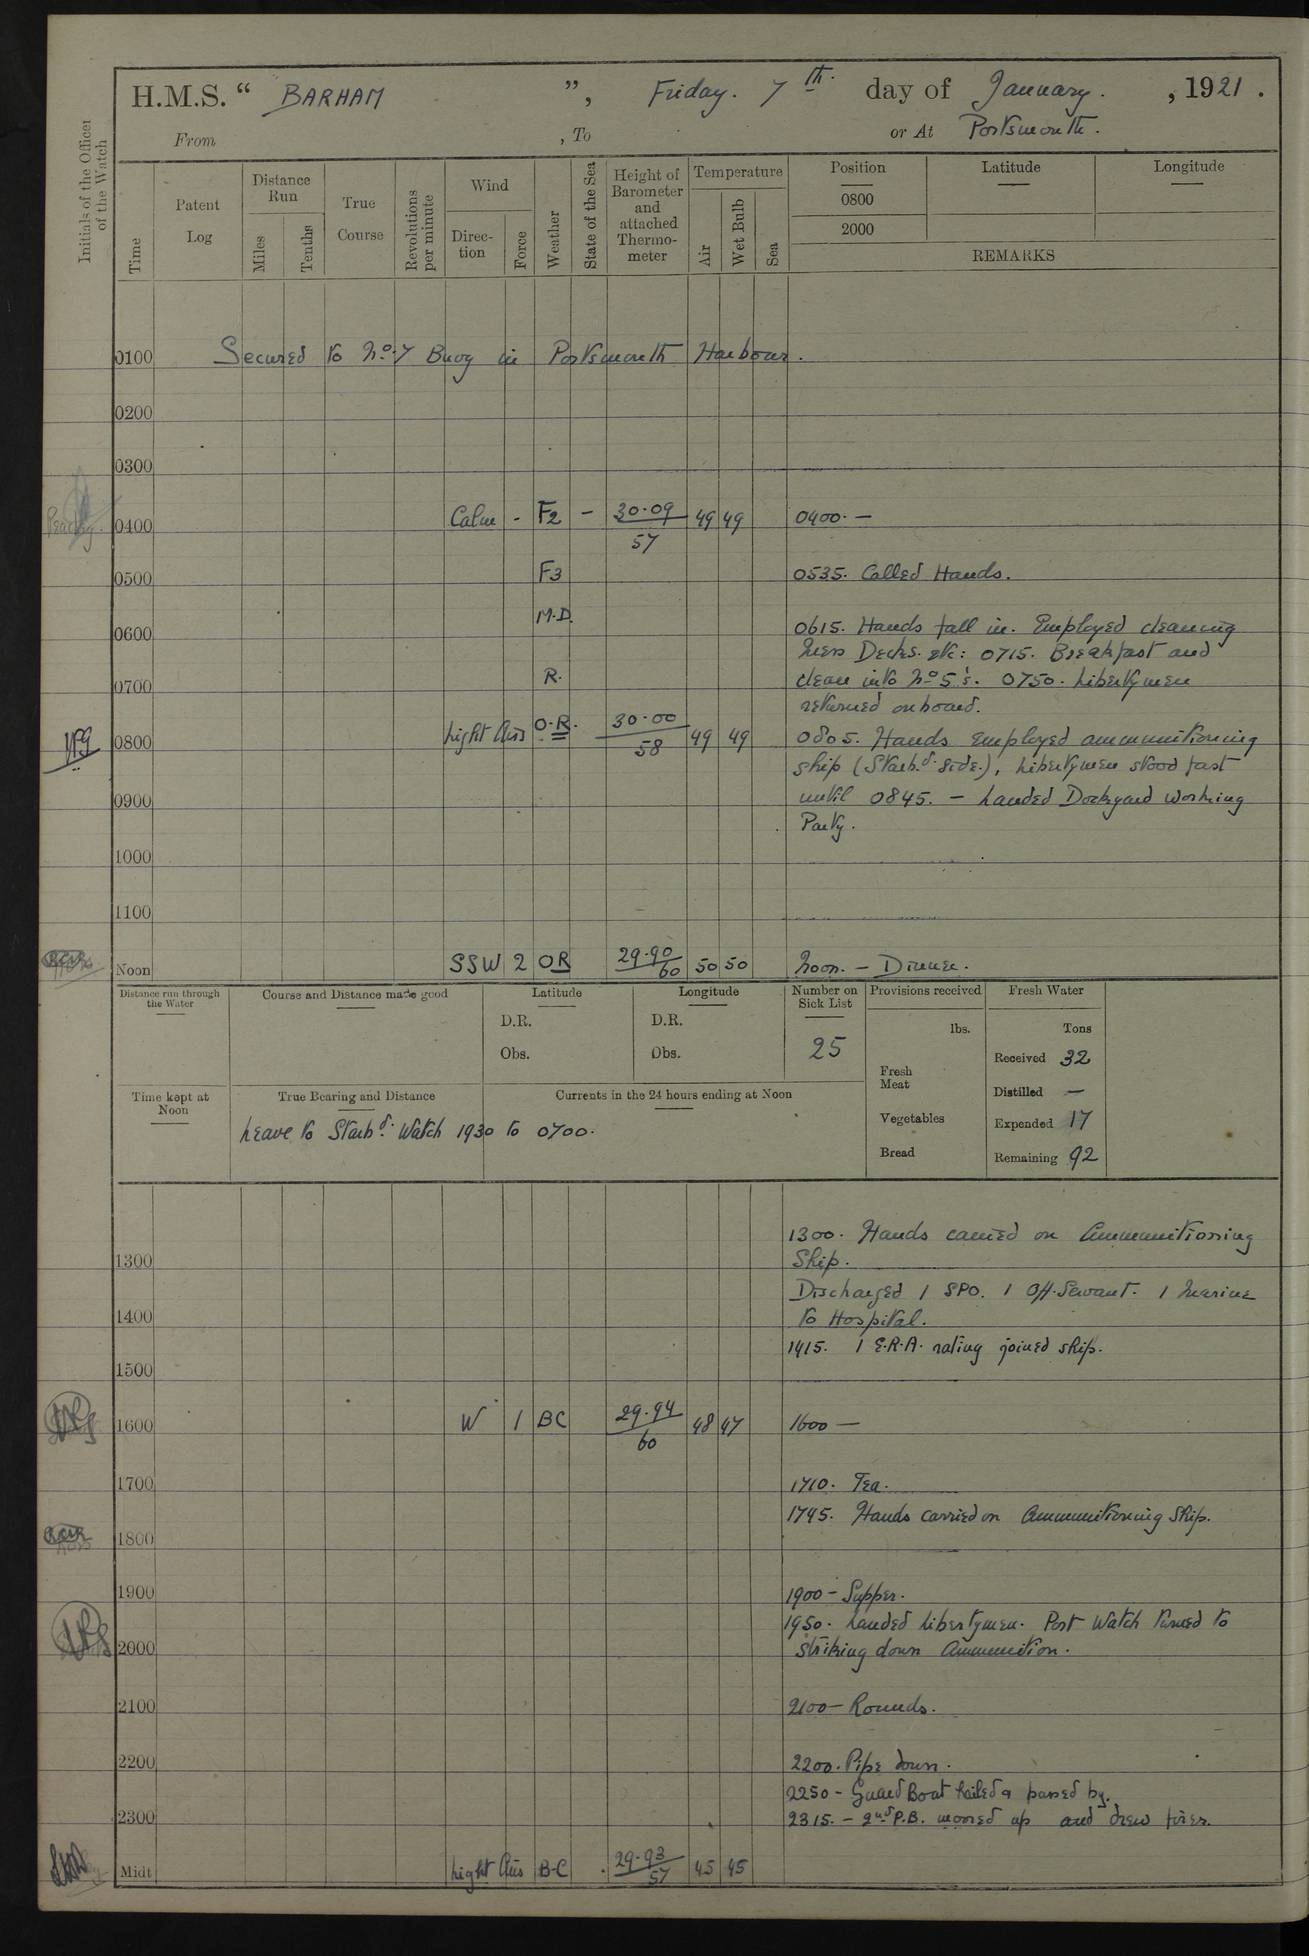 H.M.S. “ BARHAM ”, Friday. 7th. day of January. , 1921 .
From , To or At Portsmouth.
Initials of the Officer of the Watch
Time
Patent Log
Distance Run
Miles
Tenths
True Course
Revolutions per minute
Wind
Direc-tion
Force
Weather
State of the Sea
Height of Barometer and attached Thermo-meter
Temperature
Air
Wet Bulb
Sea
Position
0800
2000
Latitude
Longitude
REMARKS
0100 Secured to No. 7 Buoy in Portsmouth Harbour.
0200
0300
0400 Calm - F2 – 30.09 49 49 0400. —
57
0500 F3 0535. Called Hands.
M.D.
0600 0615. Hands fall in. Employed cleaning
Mess Decks. etc: 0715. Breakfast and
0700 R. clean into No 5's. 0750. Libertymen
returned onboard.
0800 Light Airs O.R. 30.00 49 49 0805. Hands Employed ammunitioning
58
ship (Starbd. side.), Libertymen stood fast
0900 until 0845. – Landed Dockyard Working
Party.
1000
1100
Noon SSW 2 OR 29.90 50 50 Noon. – Dinner.
60
Distance run through the Water
Course and Distance made good
Latitude
D.R.
Obs.
Longitude
D.R.
Obs.
Number on Sick List
25
Provisions received
lbs.
Fresh Meat
Vegetables
Bread
Fresh Water
Tons
Received 32
Distilled —
Expended 17
Remaining 92
Time kept at Noon
True Bearing and Distance
Currents in the 24 hours ending at Noon
Leave to Starbd. Watch 1930 to 0700.
1300. Hands carried on Ammunitioning
1300 Ship.
Discharged 1 SPO. 1 Off. Servant. 1 Marine
1400 to Hospital.
1415. 1 E.R.A. rating joined ship.
1500
1600 W 1 BC 29.94 48 47 1600 —
60
1700 1710. Tea.
1745. Hands carried on Ammunitioning Ship.
1800
1900 1900 – Supper.
1950. Landed Libertymen. Port Watch turned to
2000 striking down Ammunition.
2100 2100 – Rounds.
2200 2200. Pipe down.
2250 – Guard Boat hailed & passed by.
2300 2315. – 2nd P.B. moored up and drew fires.
Midt Light Airs B-C 29.93 45 45
57